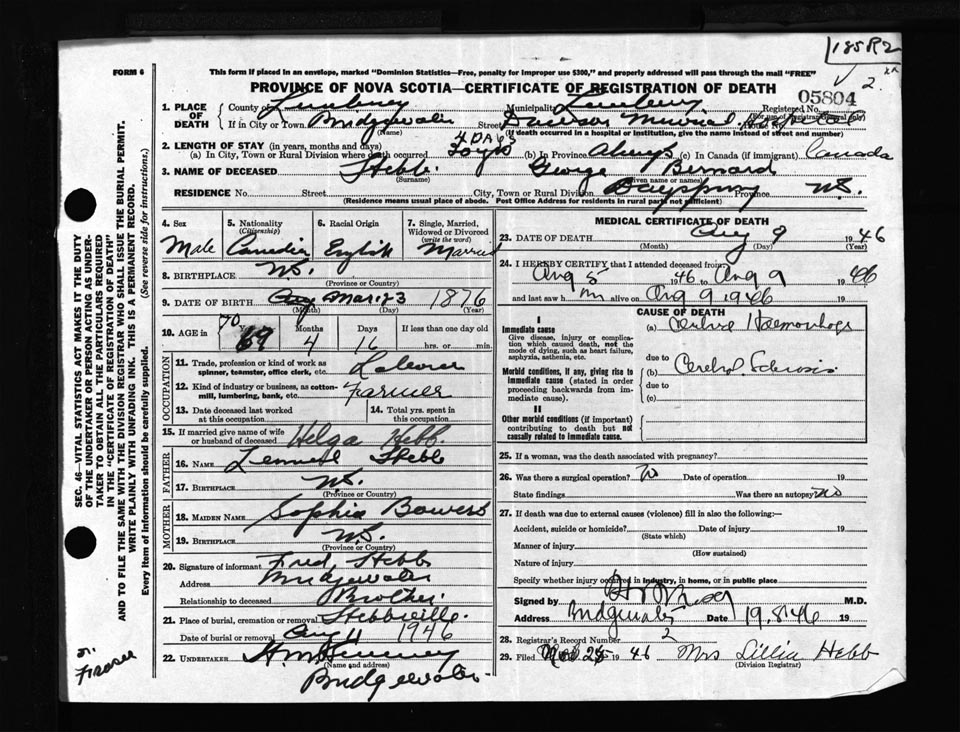 185R2
2
FORM 6
This form if placed in an envelope, marked "Dominion Statistics—Free, penalty for improper use $300," and properly addressed will pass through the mail "FREE"
PROVINCE OF NOVA SCOTIA—CERTIFICATE OF REGISTRATION OF DEATH
05804
1. PLACE OF DEATH
County of Lunenburg Municipality Lunenburg Registered No.
(For use of Registrar General only)
If in City or Town Bridgewater Street Dawson Memorial Hospital House No.
(Name) (If death occurred in a hospital or institution, give the name instead of street and number)
2. LENGTH OF STAY (in years, months and days) 4 DAYS
(a) In City, Town or Rural Division where death occurred (b) In Province Always (c) In Canada (if immigrant) Canada
3. NAME OF DECEASED Hebb George Bernard
(Surname) (Given name or names)
RESIDENCE No. Street City, Town or Rural Division Province N.S.
(Residence means usual place of abode. Post Office Address for residents in rural parts not sufficient)
SEC. 46—VITAL STATISTICS ACT MAKES IT THE DUTY
OF THE UNDERTAKER OR PERSON ACTING AS UNDER-
TAKER TO OBTAIN ALL THE PARTICULARS REQUIRED
IN THE "CERTIFICATE OF REGISTRATION OF DEATH"
AND TO FILE THE SAME WITH THE DIVISION REGISTRAR WHO SHALL ISSUE THE BURIAL PERMIT.
WRITE PLAINLY WITH UNFADING INK. THIS IS A PERMANENT RECORD.
Every item of information should be carefully supplied. (See reverse side for instructions.)
4. Sex
Male
5. Nationality
(Citizenship)
Canadian
6. Racial Origin
English
7. Single, Married, Widowed or Divorced
(write the word)
Married
8. BIRTHPLACE N.S.
(Province or Country)
9. DATE OF BIRTH Mar 23 1876
(Month) (Day) (Year)
10. AGE in 70 69 Years
Months 4
Days 16
If less than one day old
hrs. or min.
OCCUPATION
11. Trade, profession or kind of work as spinner, teamster, office clerk, etc. Laborer
12. Kind of industry or business, as cotton-mill, lumbering, bank, etc. Farmer
13. Date deceased last worked at this occupation
14. Total yrs. spent in this occupation
15. If married give name of wife or husband of deceased Helga Hebb
FATHER
16. NAME Hebb
17. BIRTHPLACE N.S.
(Province or Country)
MOTHER
18. MAIDEN NAME Sophia Bowers
19. BIRTHPLACE N.S.
(Province or Country)
20. Signature of informant Fred Hebb
Address Bridgewater
Relationship to deceased Brother
21. Place of burial, cremation or removal Hebbville
Date of burial or removal Aug 11 1946
22. UNDERTAKER
(Name and address)
Bridgewater
Dr.
Fraser
MEDICAL CERTIFICATE OF DEATH
23. DATE OF DEATH Aug 9 1946
(Month) (Day)
24. I HEREBY CERTIFY that I attended deceased from
Aug 5 1946 to Aug 9 1946
and last saw him alive on Aug 9 1946 19
I
Immediate cause
Give disease, injury or complication which caused death, not the mode of dying, such as heart failure, asphyxia, asthenia, etc.
Morbid conditions, if any, giving rise to immediate cause (stated in order proceeding backwards from immediate cause).
II
Other morbid conditions (if important) contributing to death but not causally related to immediate cause.
CAUSE OF DEATH
(a) Haemorrhage
due to
(b) Cerebral Sclerosis
due to
(c)
25. If a woman, was the death associated with pregnancy?
26. Was there a surgical operation? No Date of operation 19
State findings Was there an autopsy? no
27. If death was due to external causes (violence) fill in also the following:—
Accident, suicide or homicide? Date of injury 19
(State which)
Manner of injury
(How sustained)
Nature of injury
Specify whether injury occurred in industry, in home, or in public place
Signed by M.D.
Address Bridgewater Date 19.8.46 19
28. Registrar's Record Number 2
29. Filed 1946 Mrs Lillia Hebb
(Division Registrar)